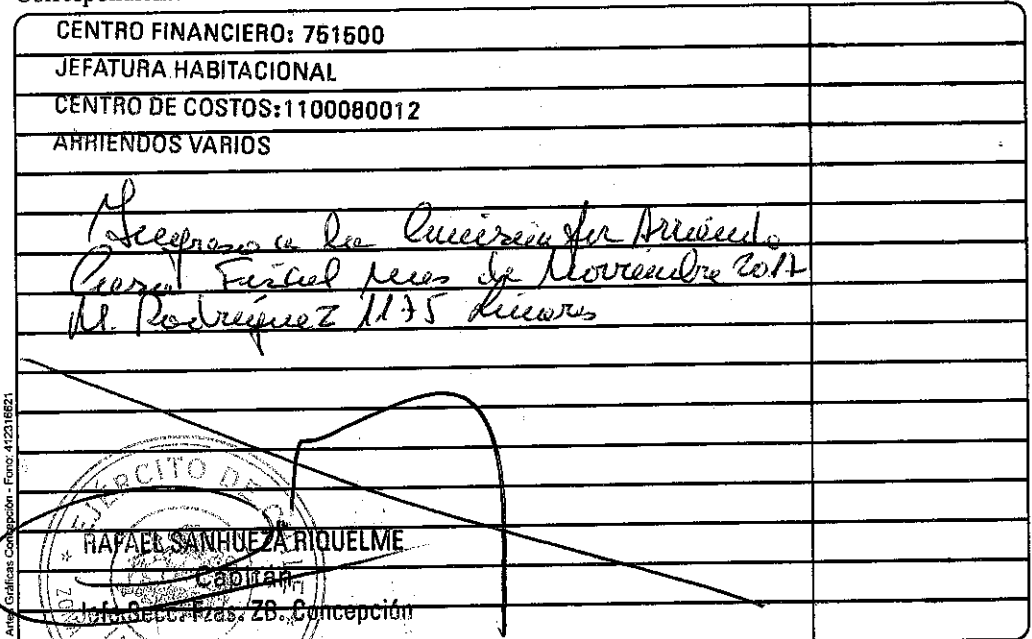 CENTRO FINANCIERO: 751500
JEFATURA HABITACIONAL
CENTRO DE COSTOS:1100080012
ARRIENDOS VARIOS
Ingreso a la Comisión por Arriendo
Casa Fiscal mes de Noviembre 2017
M. Rodríguez 1175 Linares
EJÉRCITO DE
RAFAEL SANHUEZA RIQUELME
Capitán
Jefe Secc. Fzas. ZB. Concepción
Artes Gráficas Concepción - Fono: 412316621